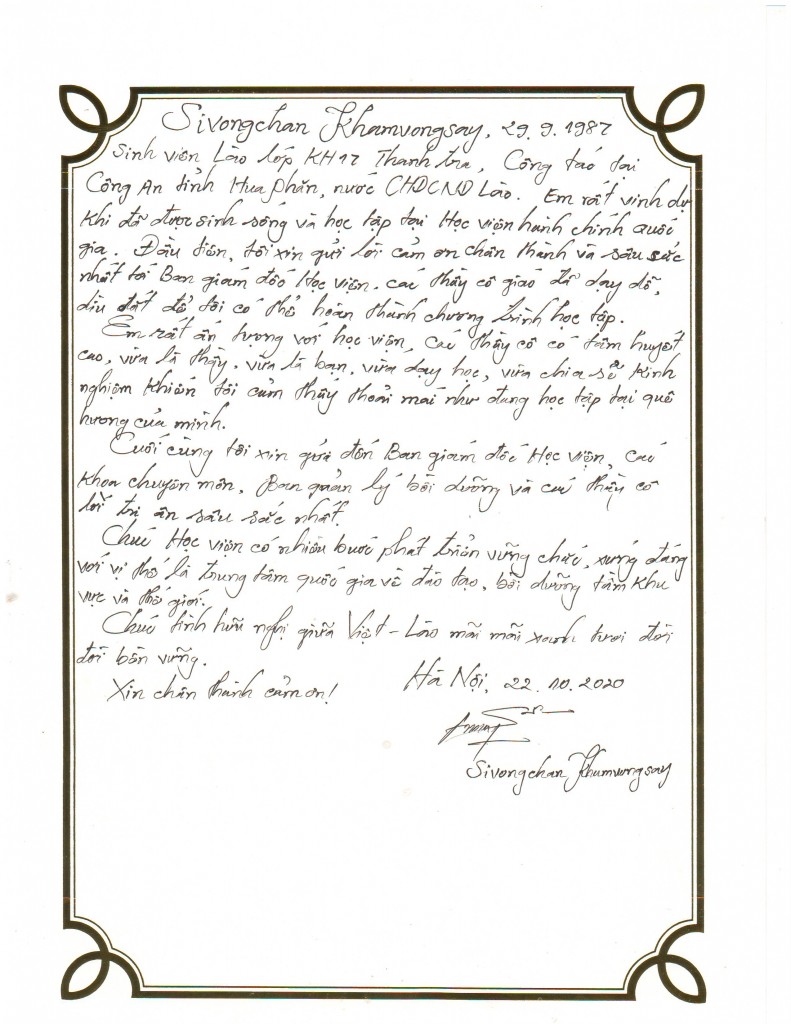 Sivongchan Khamvongsay, 29.9.1987
Sinh viên Lào lớp KH17 Thanh tra, Công tác tại
Công An tỉnh Hua phăn, nước CHDCND Lào. Em rất vinh dự
khi đã được sinh sống và học tập tại Học viện hành chính quốc
gia. Đầu tiên, tôi xin gửi lời cảm ơn chân thành và sâu sắc
nhất tới Ban giám đốc Học viện. các thầy cô giáo đã dạy dỗ,
dìu dắt để tôi có thể hoàn thành chương trình học tập.
Em rất ấn tượng với học viện, các thầy cô có tâm huyết
cao, vừa là thầy, vừa là bạn, vừa dạy học, vừa chia sẻ kinh
nghiệm khiến tôi cảm thấy thoải mái như đang học tập tại quê
hương của mình.
Cuối cùng tôi xin gửi đến Ban giám đốc Học viện, các
khoa chuyên môn, Ban quản lý bồi dưỡng và các thầy cô
lời tri ân sâu sắc nhất.
Chúc Học viện có nhiều bước phát triển vững chắc, xứng đáng
với vị thế là trung tâm quốc gia về đào tạo, bồi dưỡng tầm khu
vực và thế giới.
Chúc tình hữu nghị giữa Việt - Lào mãi mãi xanh tươi đời
đời bền vững.
Xin chân thành cảm ơn! Hà Nội, 22.10.2020
Sivongchan Khamvongsay